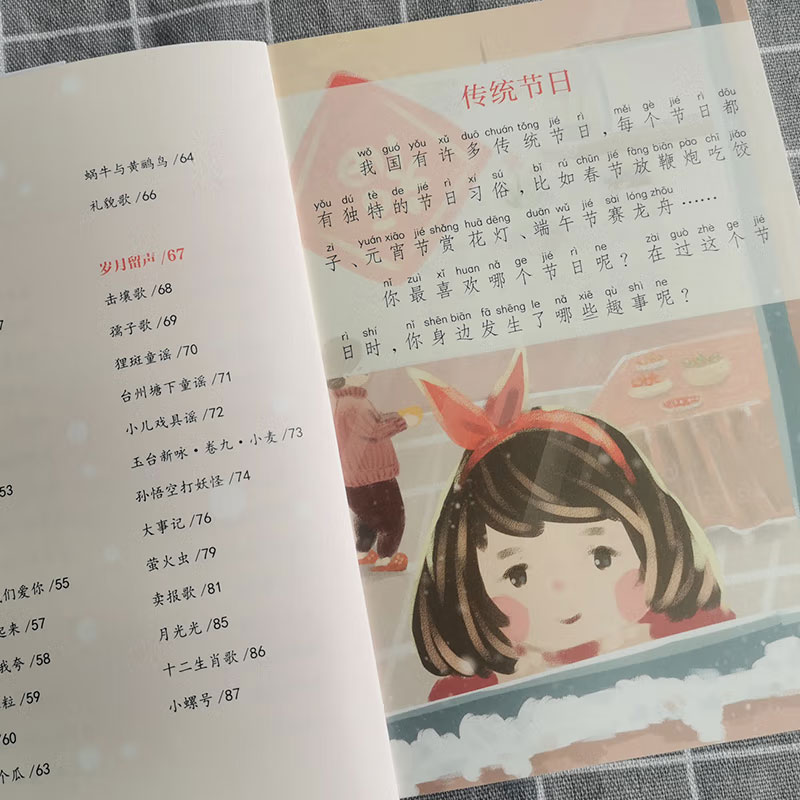 7
53
们爱你 /55
起来 /57
我夸 /58
粒 /59
/60
个瓜 /63
蜗牛与黄鹂鸟 /64
礼貌歌 /66
岁月留声 /67
击壤歌 /68
孺子歌 /69
狸斑童谣 /70
台州塘下童谣 /71
小儿戏具谣 /72
玉台新咏·卷九·小麦 /73
孙悟空打妖怪 /74
大事记 /76
萤火虫 /79
卖报歌 /81
月光光 /85
十二生肖歌 /86
小螺号 /87
传统节日
wǒ guó yǒu xǔ duō chuán tǒng jié rì měi gè jié rì dōu
我国有许多传统节日，每个节日都
yǒu dú tè de jié rì xí sú bǐ rú chūn jié fàng biān pào chī jiǎo
有独特的节日习俗，比如春节放鞭炮吃饺
zi yuán xiāo jié shǎng huā dēng duān wǔ jié sài lóng zhōu
子、元宵节赏花灯、端午节赛龙舟……
nǐ zuì xǐ huan nǎ ge jié rì ne zài guò zhè ge jié
你最喜欢哪个节日呢？在过这个节
rì shí nǐ shēn biān fā shēng le nǎ xiē qù shì ne
日时，你身边发生了哪些趣事呢？